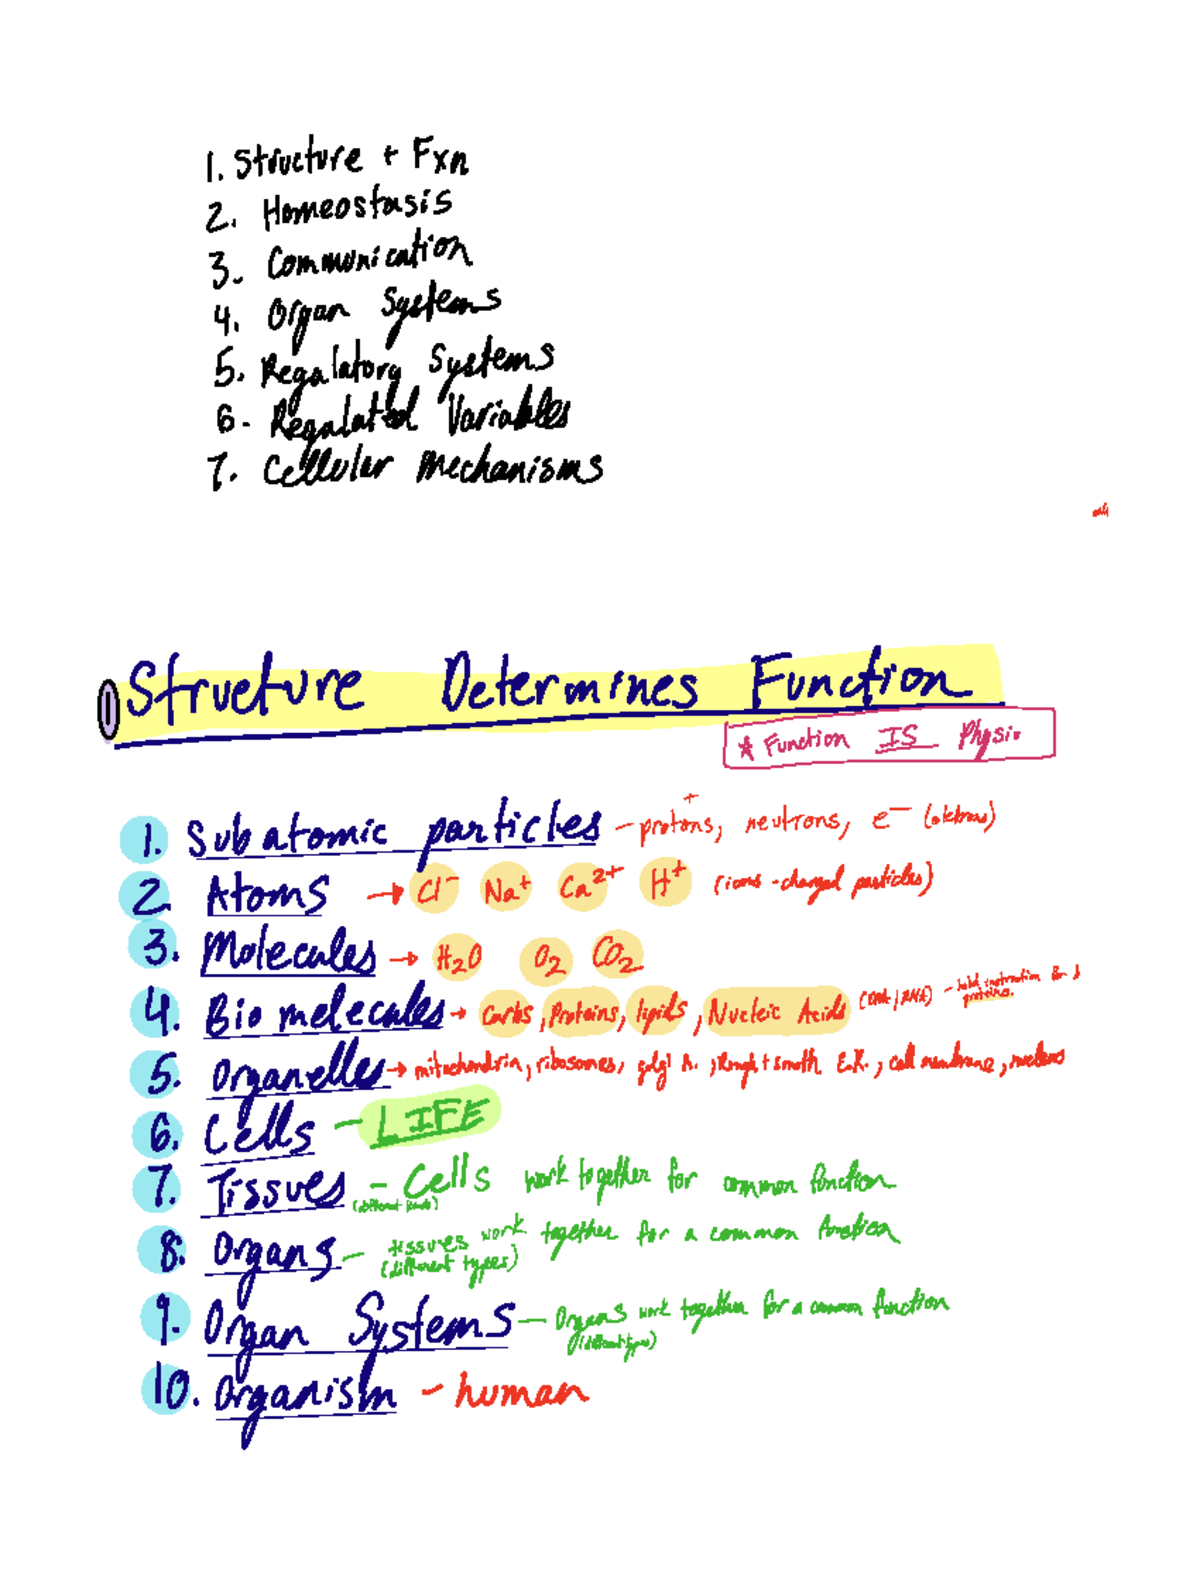 1. Structure + Fxn
2. Homeostasis
3. Communication
4. Organ Systems
5. Regalatory Systems
6. Regalated Variables
7. Cellular Mechanisms
① Structure Determines Function
* Function IS Physio
1. Sub atomic particles - protons, neutrons, e⁻ (eletrons)
+
2 Atoms → Cl⁻ Na⁺ Ca²⁺ H⁺ (ions - charged particles)
3. Molecules → H₂O O₂ CO₂
4. Bio melecules → Carbs, Proteins, lipids, Nucleic Acids (DNA/RNA) - hold instruction for
proteins.
5. Organelles → mitochondria, ribosomes, golgi A., Rough + smoth E.R., cell membrane, nucleus
6. Cells - LIFE
7. Tissues - Cells work together for common function
(different kinds)
8. Organs - tissues work together for a common function
(different types)
9. Organ Systems - Organs work together for a common function
(different types)
10. Organism - human